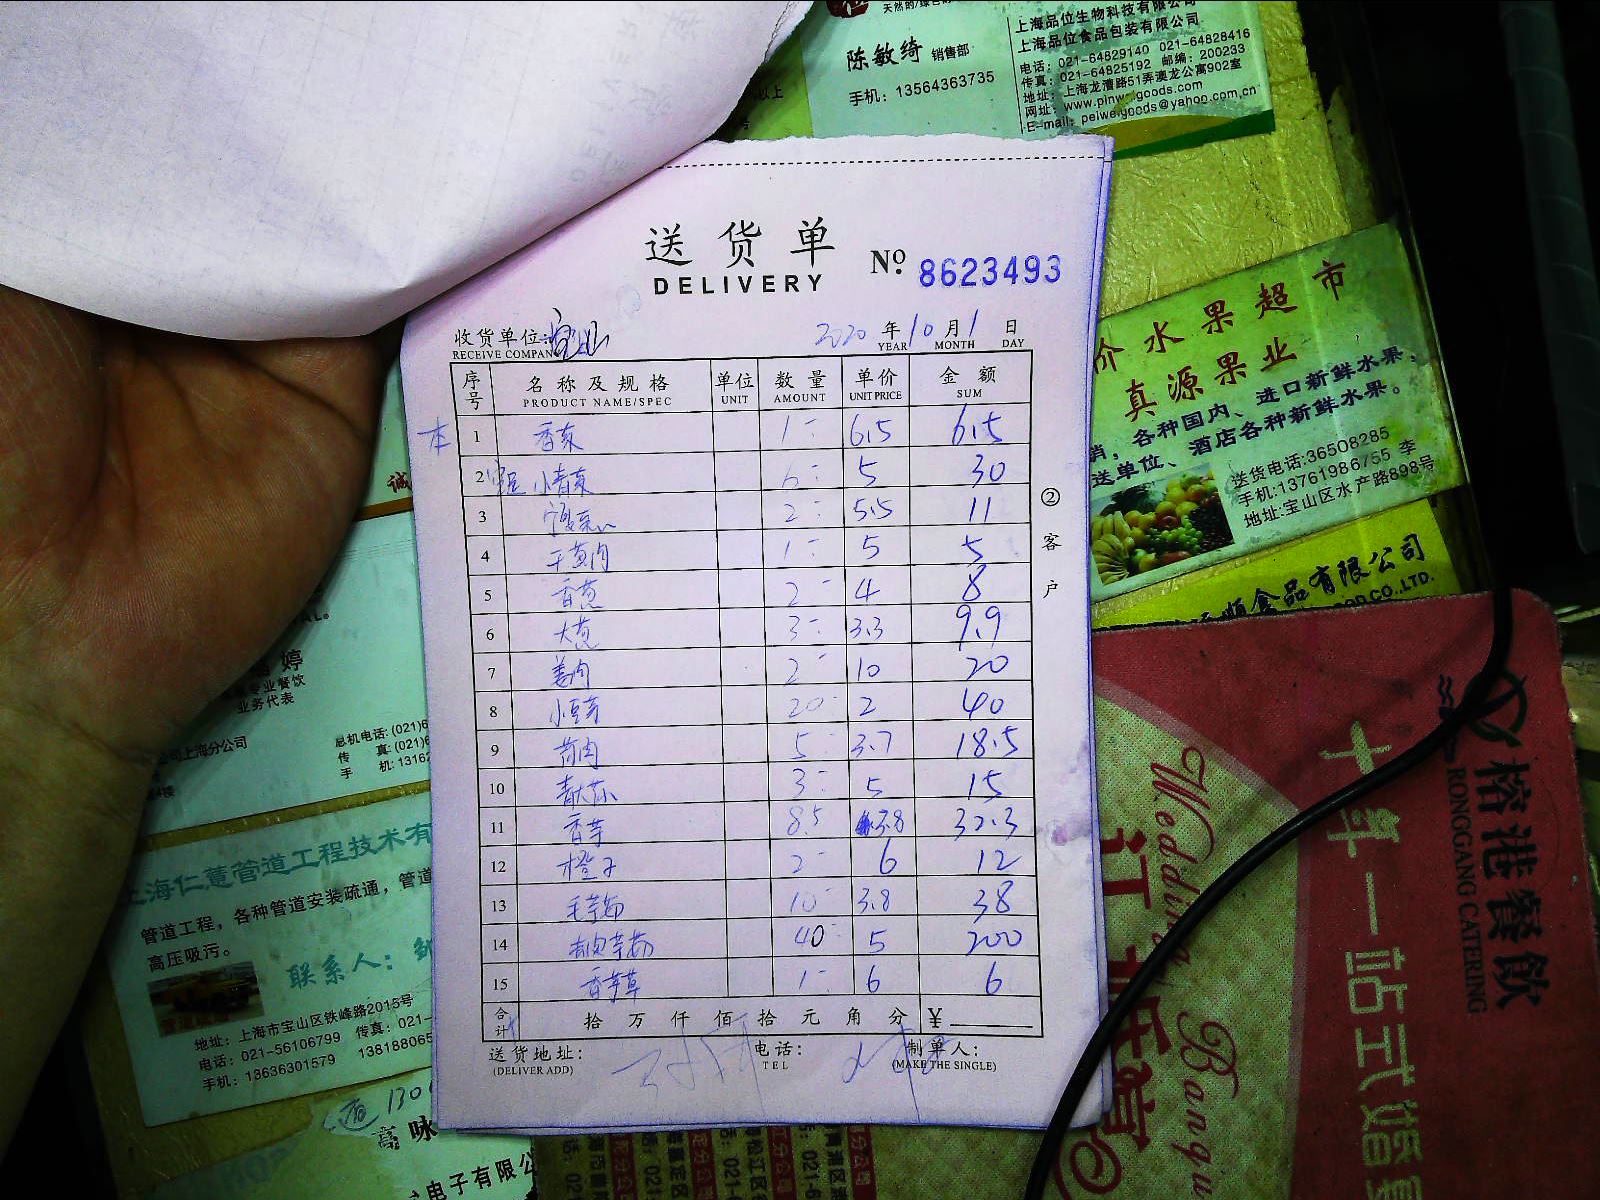 天然的/绿色
陈敏绮 销售部
手机：13564363735
上海品位生物科技有限公司
上海品位食品包装有限公司
电话：021-64829140 021-64828416
传真：021-64825192 邮编：200233
地址：上海龙漕路51弄澳龙公寓902室
网址：www.pinweigoods.com
E-mail：peiwe.goods@yahoo.com.cn
送货单
DELIVERY
№ 8623493
收货单位：宝山
RECEIVE COMPANY
2020 年 10 月 1 日
YEAR MONTH DAY
序号 名称及规格 单位 数量 单价 金额
PRODUCT NAME/SPEC UNIT AMOUNT UNIT PRICE SUM
本 1 香菜 1 6.5 6.5
2 小青菜 6 5 30
3 5.5 11
2
4 1 5 5
5 香葱 2 4 8
6 大葱 3 3.3 9.9
7 姜肉 2 10 20
8 小豆芽 20 2 40
9 5 3.7 18.5
10 3 5 15
11 香芋 8.5 3.8 32.3
12 橙子 2 6 12
13 毛芋艿 10 3.8 38
14 芋艿 40 5 200
15 香芋草 1 6 6
合计 拾 万 仟 佰 拾 元 角 分 ¥
送货地址： 电话： 制单人：
(DELIVER ADD) TEL (MAKE THE SINGLE)
② 客户
价水果超市
真源果业
销，各种国内、进口新鲜水果，
送单位、酒店各种新鲜水果。
送货电话:36508285
手机:13761986755 李
地址:宝山区水产路898号
食品有限公司
OOD CO.,LTD.
诚
婷
专业餐饮
业务代表
公司上海分公司
总机电话：(021)6
传 真：(021)6
手 机：1316
上海仁薏管道工程技术有
管道工程，各种管道安装疏通，管道
高压吸污。
联系人：
地址：上海市宝山区铁峰路2015号
电话：021-56106799 传真：021-
手机：13636301579 138188065
130
高味
电子有限公
榕港餐飲
RONGGANG CATERING
十年一站式婚宴
Wedding Banqu